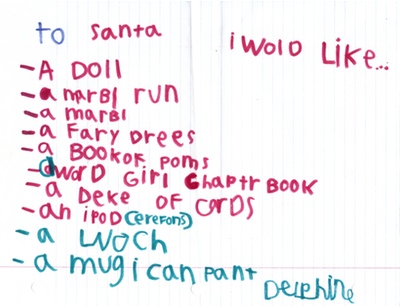 to santa
i wolD Like...
- A DOll
- a marBl run
- a marBl
- a Fary Drees
- a BOOKOF poms
- a worD Girl Chaptr BOOK
- a Deke OF corDs
- an ipoD (erefons)
- a woch
- a mugican pant
Delphine